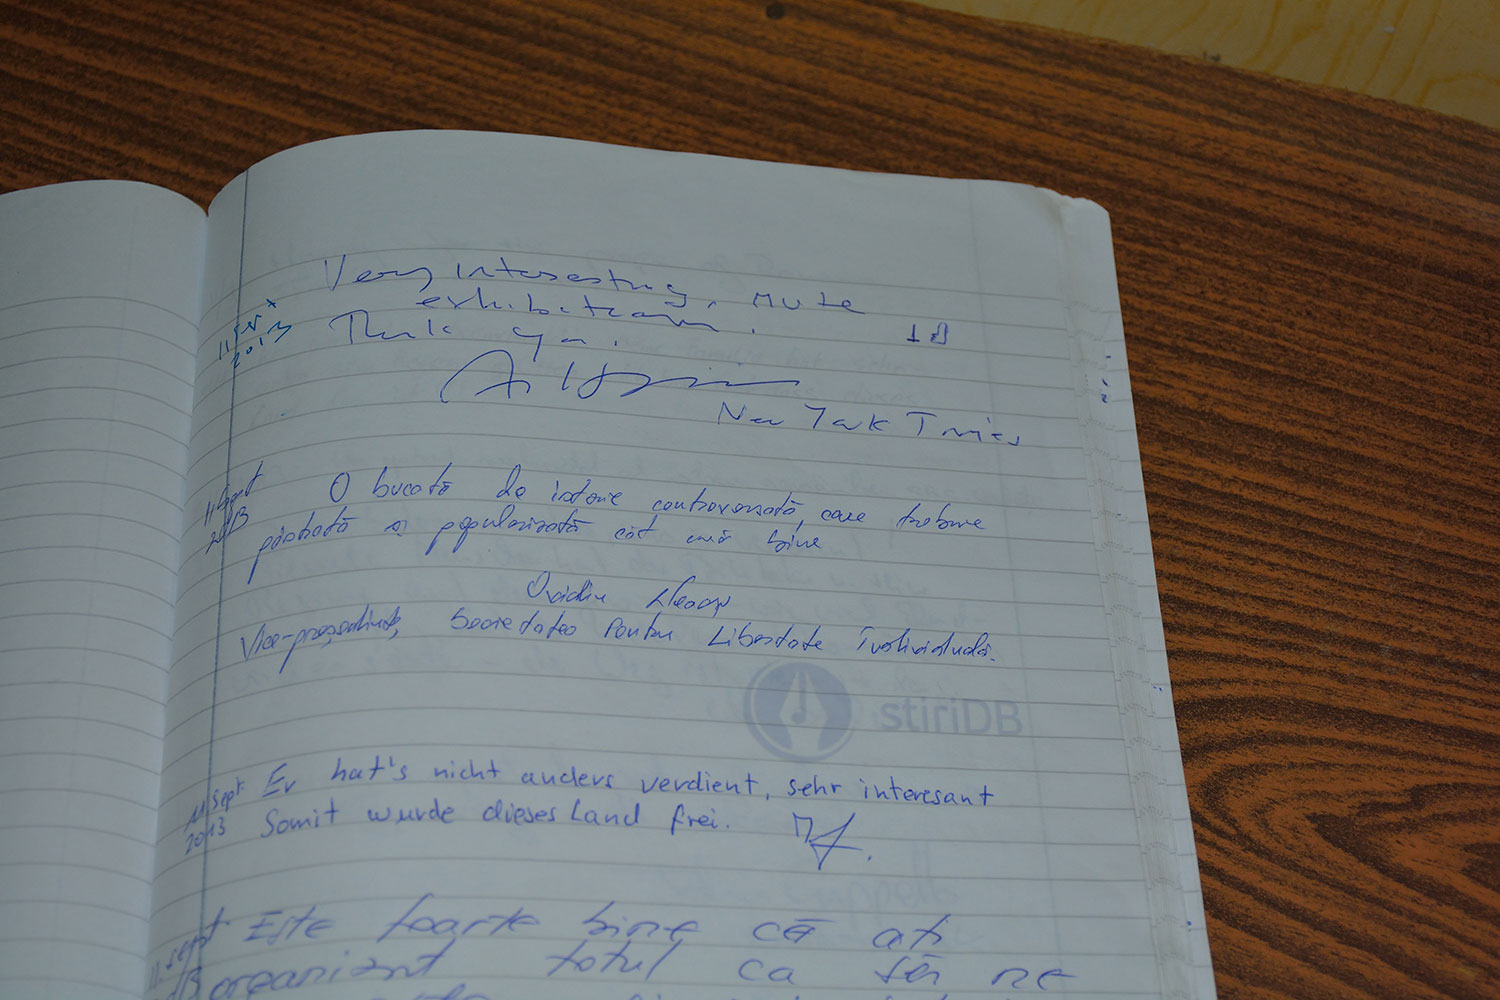 Very interesting, mute
exhibition.
Thank you.
18
11 sept
2013
New York Times
11 sept
2013
O bucată de istorie controversată, care trebuie
păstrată și popularizată cât mai bine
Ovidiu
Vice-președinte, Societatea Pentru Libertate Individuală.
stiriDB
11 sept
2013
Er hat's nicht anders verdient, sehr interesant
Somit wurde dieses Land frei.
11. sept
Este foarte bine că ați
organizat totul ca să ne